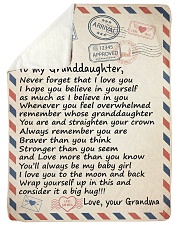 ARRIVAL
12345
APPROVED
To my Granddaughter,
Never forget that I love you
I hope you believe in yourself
as much as I believe in you
Whenever you feel overwhelmed
remember whose granddaughter
You are and straighten your crown
Always remember you are
Braver than you think
Stronger than you seem
and Love more than you know
You'll always be my baby girl
I love you to the moon and back
Wrap yourself up in this and
consider it a big hug!!!
Love, your Grandma